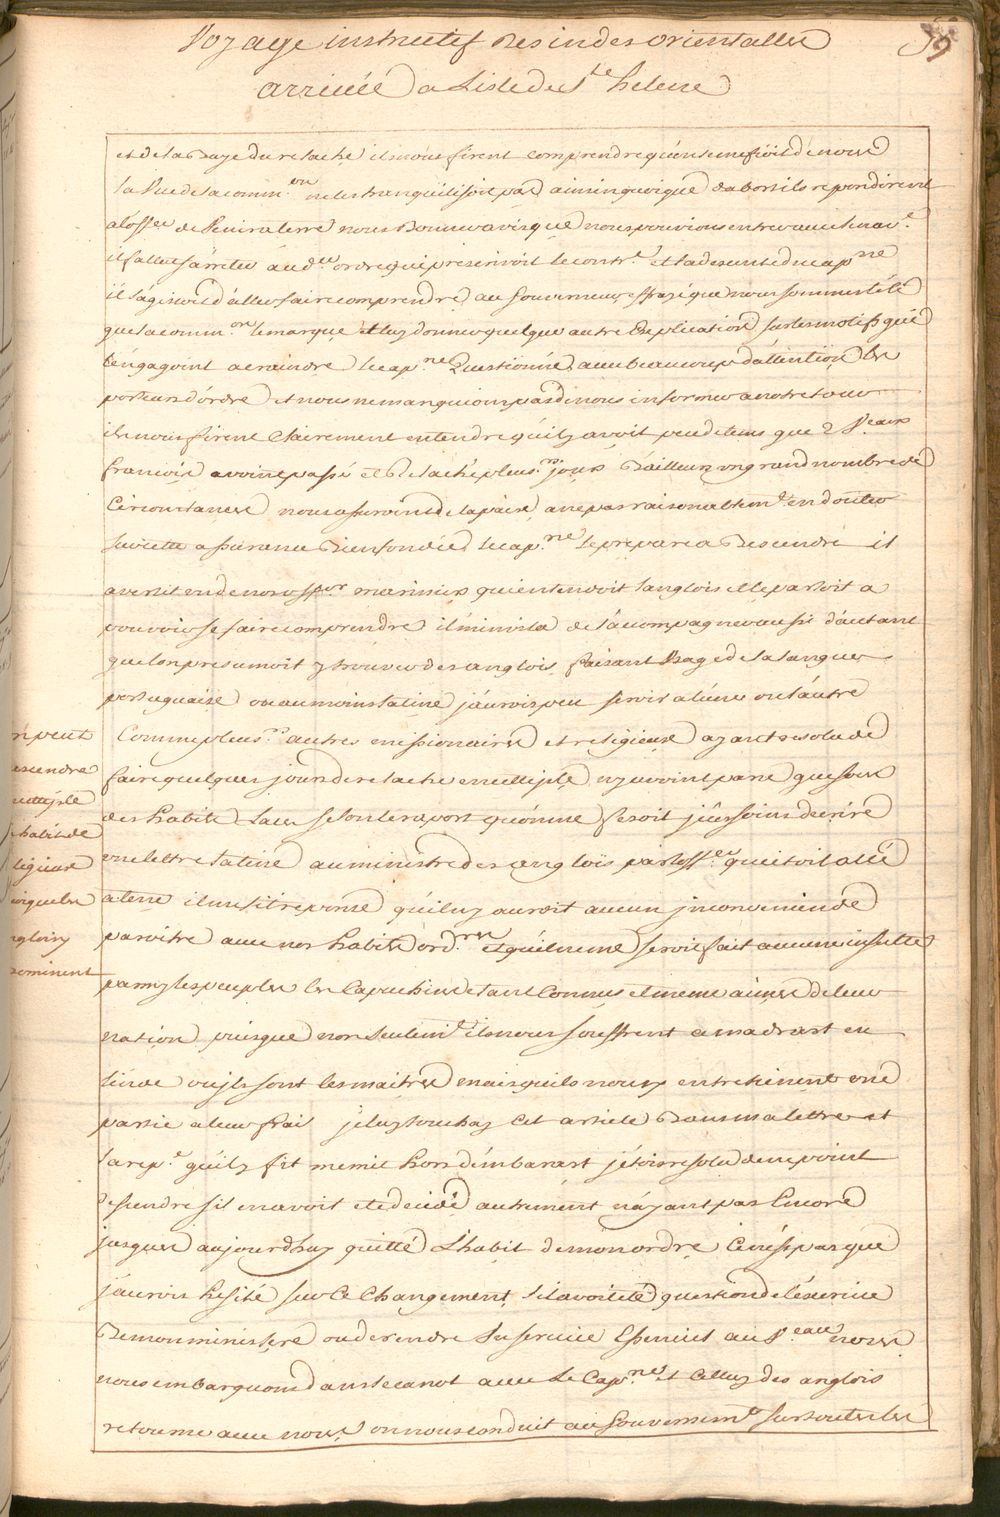 Voyage instructif des indes orientalles
59
arriveé a Lisle de Ste helene
et de la Baye du relache il nous firent comprendre qu'on se mefioit de nous
la vue de la comm.on ne les tranquilisoit pas ainsin quoique dabort ils repondirent
a l'offer de venir a terre nous donner avis que nous pouvions entrer avec le nav.e
il fallut s'arreter au d.er ordre qui prescrivoit le contr.e et la descente du cap.ne
il s'agissoit d'aller faire comprendre au Gouverneur effrayé que nous sommes tels
que la comm.on le marque et luy donner quelque autre Explication sur les motifs qui
l'engagoint a craindre le cap.ne Questionné avec beaucoup d'attention les
porteurs d'ordre et nous ne manquions pas de nous informer a notre tour
ils nous firent clairement entendre qu'il y avoit peu de tems que 2 V.eaux
francois avoint passé et Relaché plus.rs jours d'ailleurs un grand nombre de
Circonstances nous assuroint de la paix a ne pas raisonablem.t en douter
sur cette assurance Bien fondée le cap.ne se prepare a Descendre il
avertit un de nos off.ers mariniers qui entendoit l'anglois et le parloit a
pouvoir se faire comprendre il m'invita de l'acompagner aussi d'autant
que l'on presumoit y trouver des anglois faisant Usage de la langue
portuguaise ou au moins latine j'aurois peu servir a l'une ou l'autre
Comme plus.rs autres missionaires et religieux ayant resolu de
faire quelques jours de relache en cette isle n'y avoint paru que sous
des habits laics selon le raport qu'on me fesoit j'eus soin d'ecrire
une lettre latine au ministre des anglois par l'off.er qui etoit allé
a terre il me fit reponse qu'il n'y auroit aucun inconvenient de
paroitre avec nos habits ord.res et qu'il ne me seroit fait aucune insulte
parmy les peuples les Capucins etant Connus et meme aimés de leur
nation puisque non seulem.t ils nous souffrent a madrast en
l'inde ou ils sont les maitres mais qu'ils nous y entretienent une
partie a leur frai je luy touchay cet article Dans ma lettre et
la rep.e qu'il y fit me mit hors d'embarast j'etois resolu de ne point
Descendre s'il en avoit eté decidé autrement n'ayant pas Encore
jusques aujourdhuy quitté L'habit de mon ordre Ce n'est pas que
j'aurois hesité sur Ce Changement s'il avoit eté question de l'exercice
De mon ministere ou de rendre du service Essentiel au V.eau nous
nous embarquons dans le canot avec Le Cap.ne et Celluy des anglois
retourne avec nous on nous conduit au Gouvernem.t sur toutes les
n peut
escendre
cette isle
habit de
ligieux
anglois
dominent